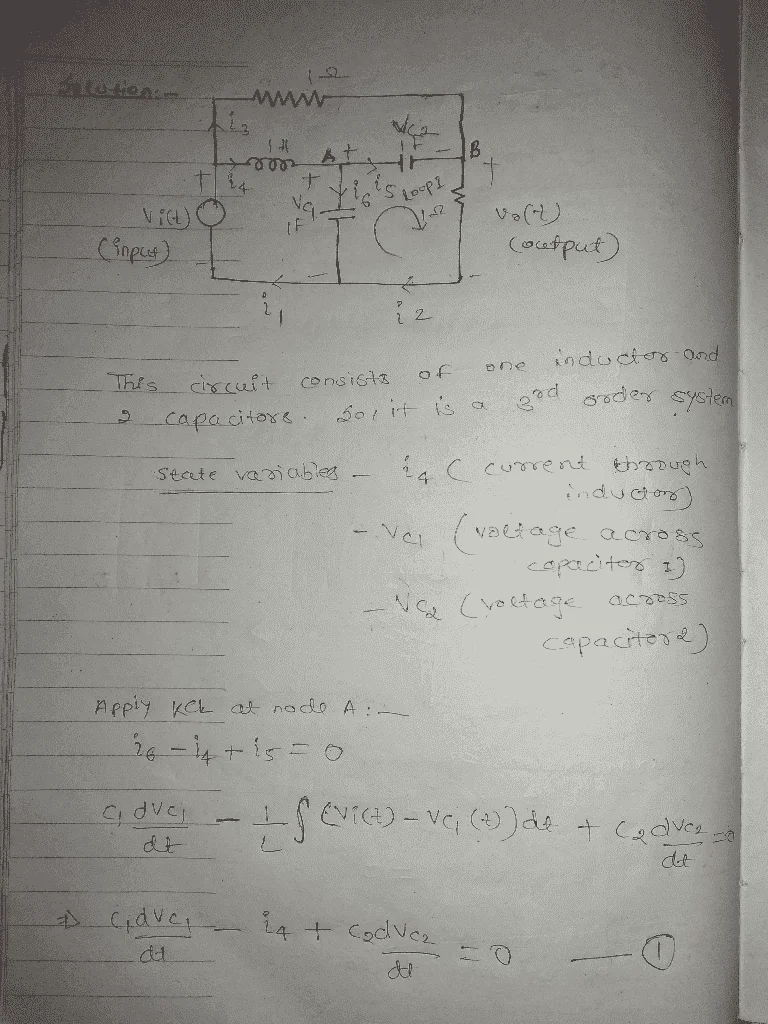 Solution:-
1Ω
i3
VC2
1H
A
+
1F
-
B
+
i4
+
+
i6
i5
Loop1
Vi(t)
VC1
1F
1Ω
Vo(t)
(input)
(output)
-
-
-
i1
i2
This circuit consists of one inductor and
2 capacitors. So, it is a 3rd order system
State variables - i4 (current through
inductor)
- VC1 (voltage across
capacitor 1)
- VC2 (voltage across
capacitor 2)
Apply KCL at node A :-
i6 - i4 + i5 = 0
C1 dVC1/dt - 1/L ∫ (Vi(t) - VC1(t)) dt + C2 dVC2/dt = 0
⇒ C1 dVC1/dt - i4 + C2 dVC2/dt = 0 — ①